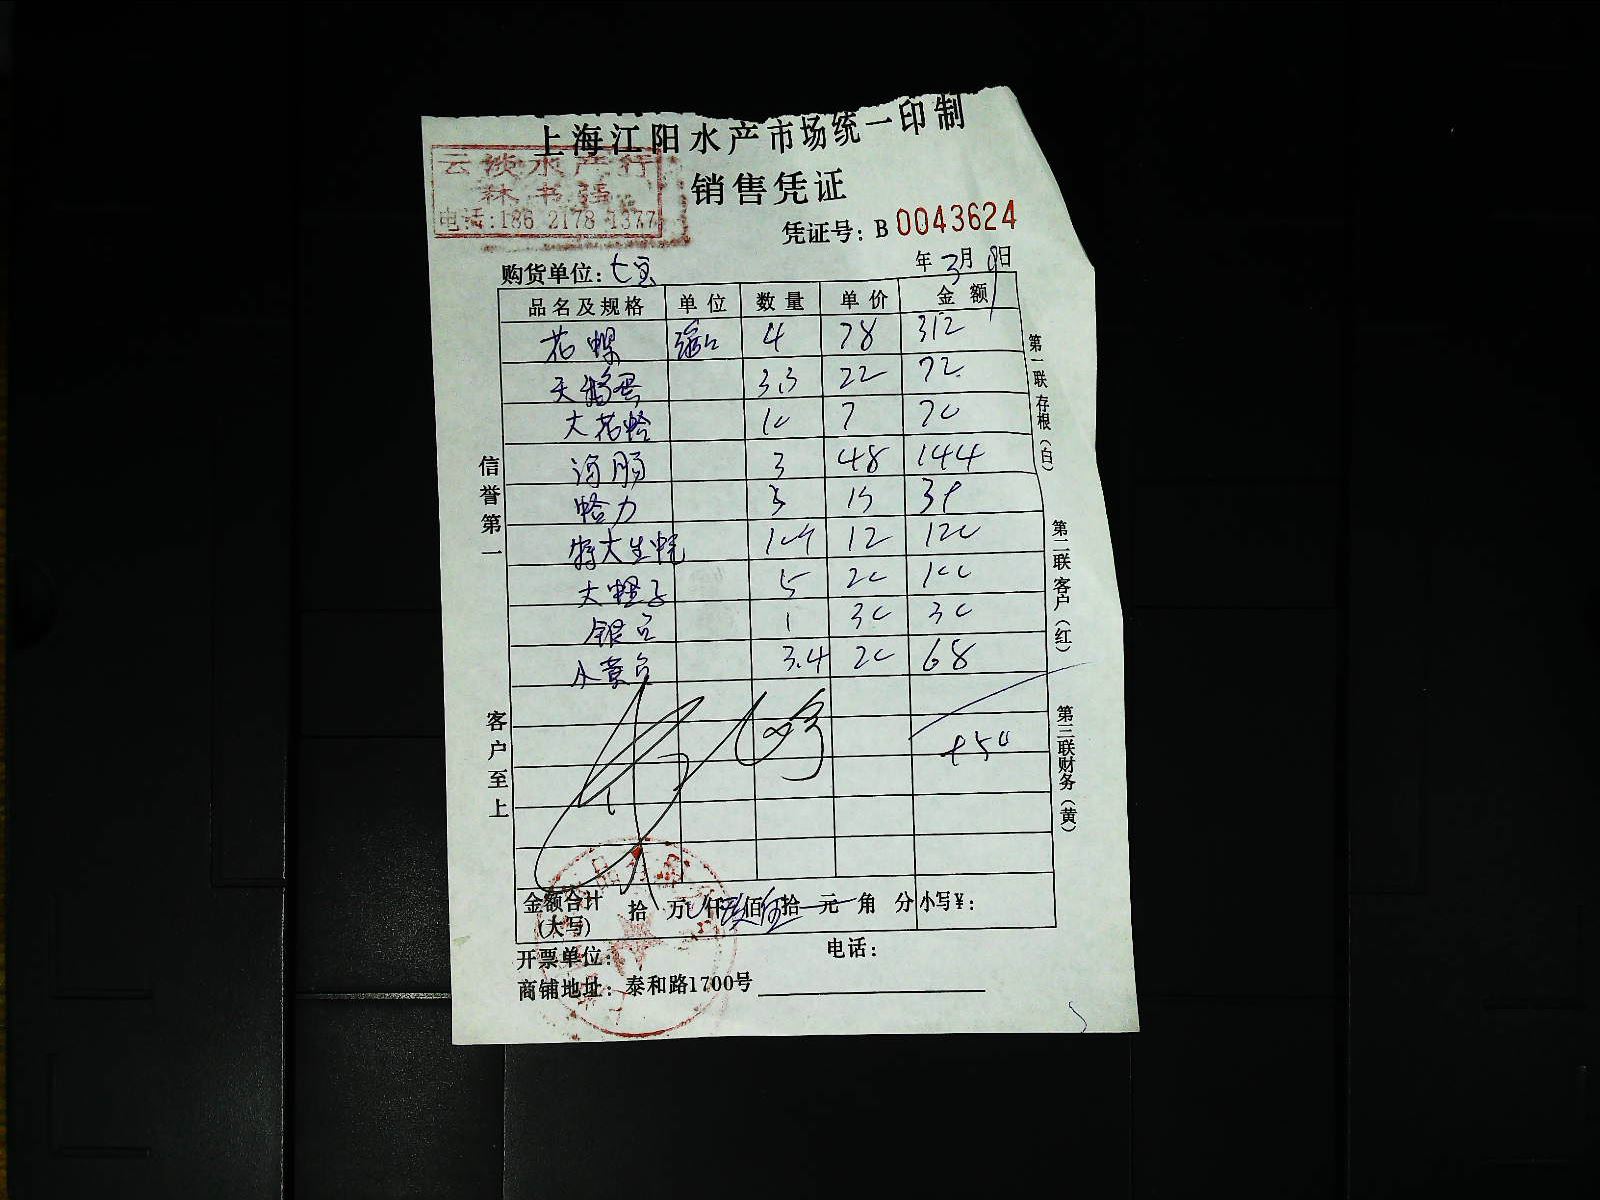 上海江阳水产市场统一印制
云淡水产行
林书强
电话:186 2178 1377
销售凭证
凭证号: B 0043624
购货单位: 七宝 年 3月 9日
品名及规格 单位 数量 单价 金额
花螺 4 78 312
天鹅蛋 3.3 22 72
大花蛤 10 7 70
海肠 3 48 144
蛤力 3 13 39
特大生蚝 12 120
大蛏子 5 20 100
银 1 30 30
小黄 3.4 20 68
第一联存根(白)
第二联客户(红)
第三联财务(黄)
信誉第一
客户至上
金额合计(大写) 拾 万 仟 佰 拾 元 角 分 小写¥:
开票单位: 电话:
商铺地址: 泰和路1700号